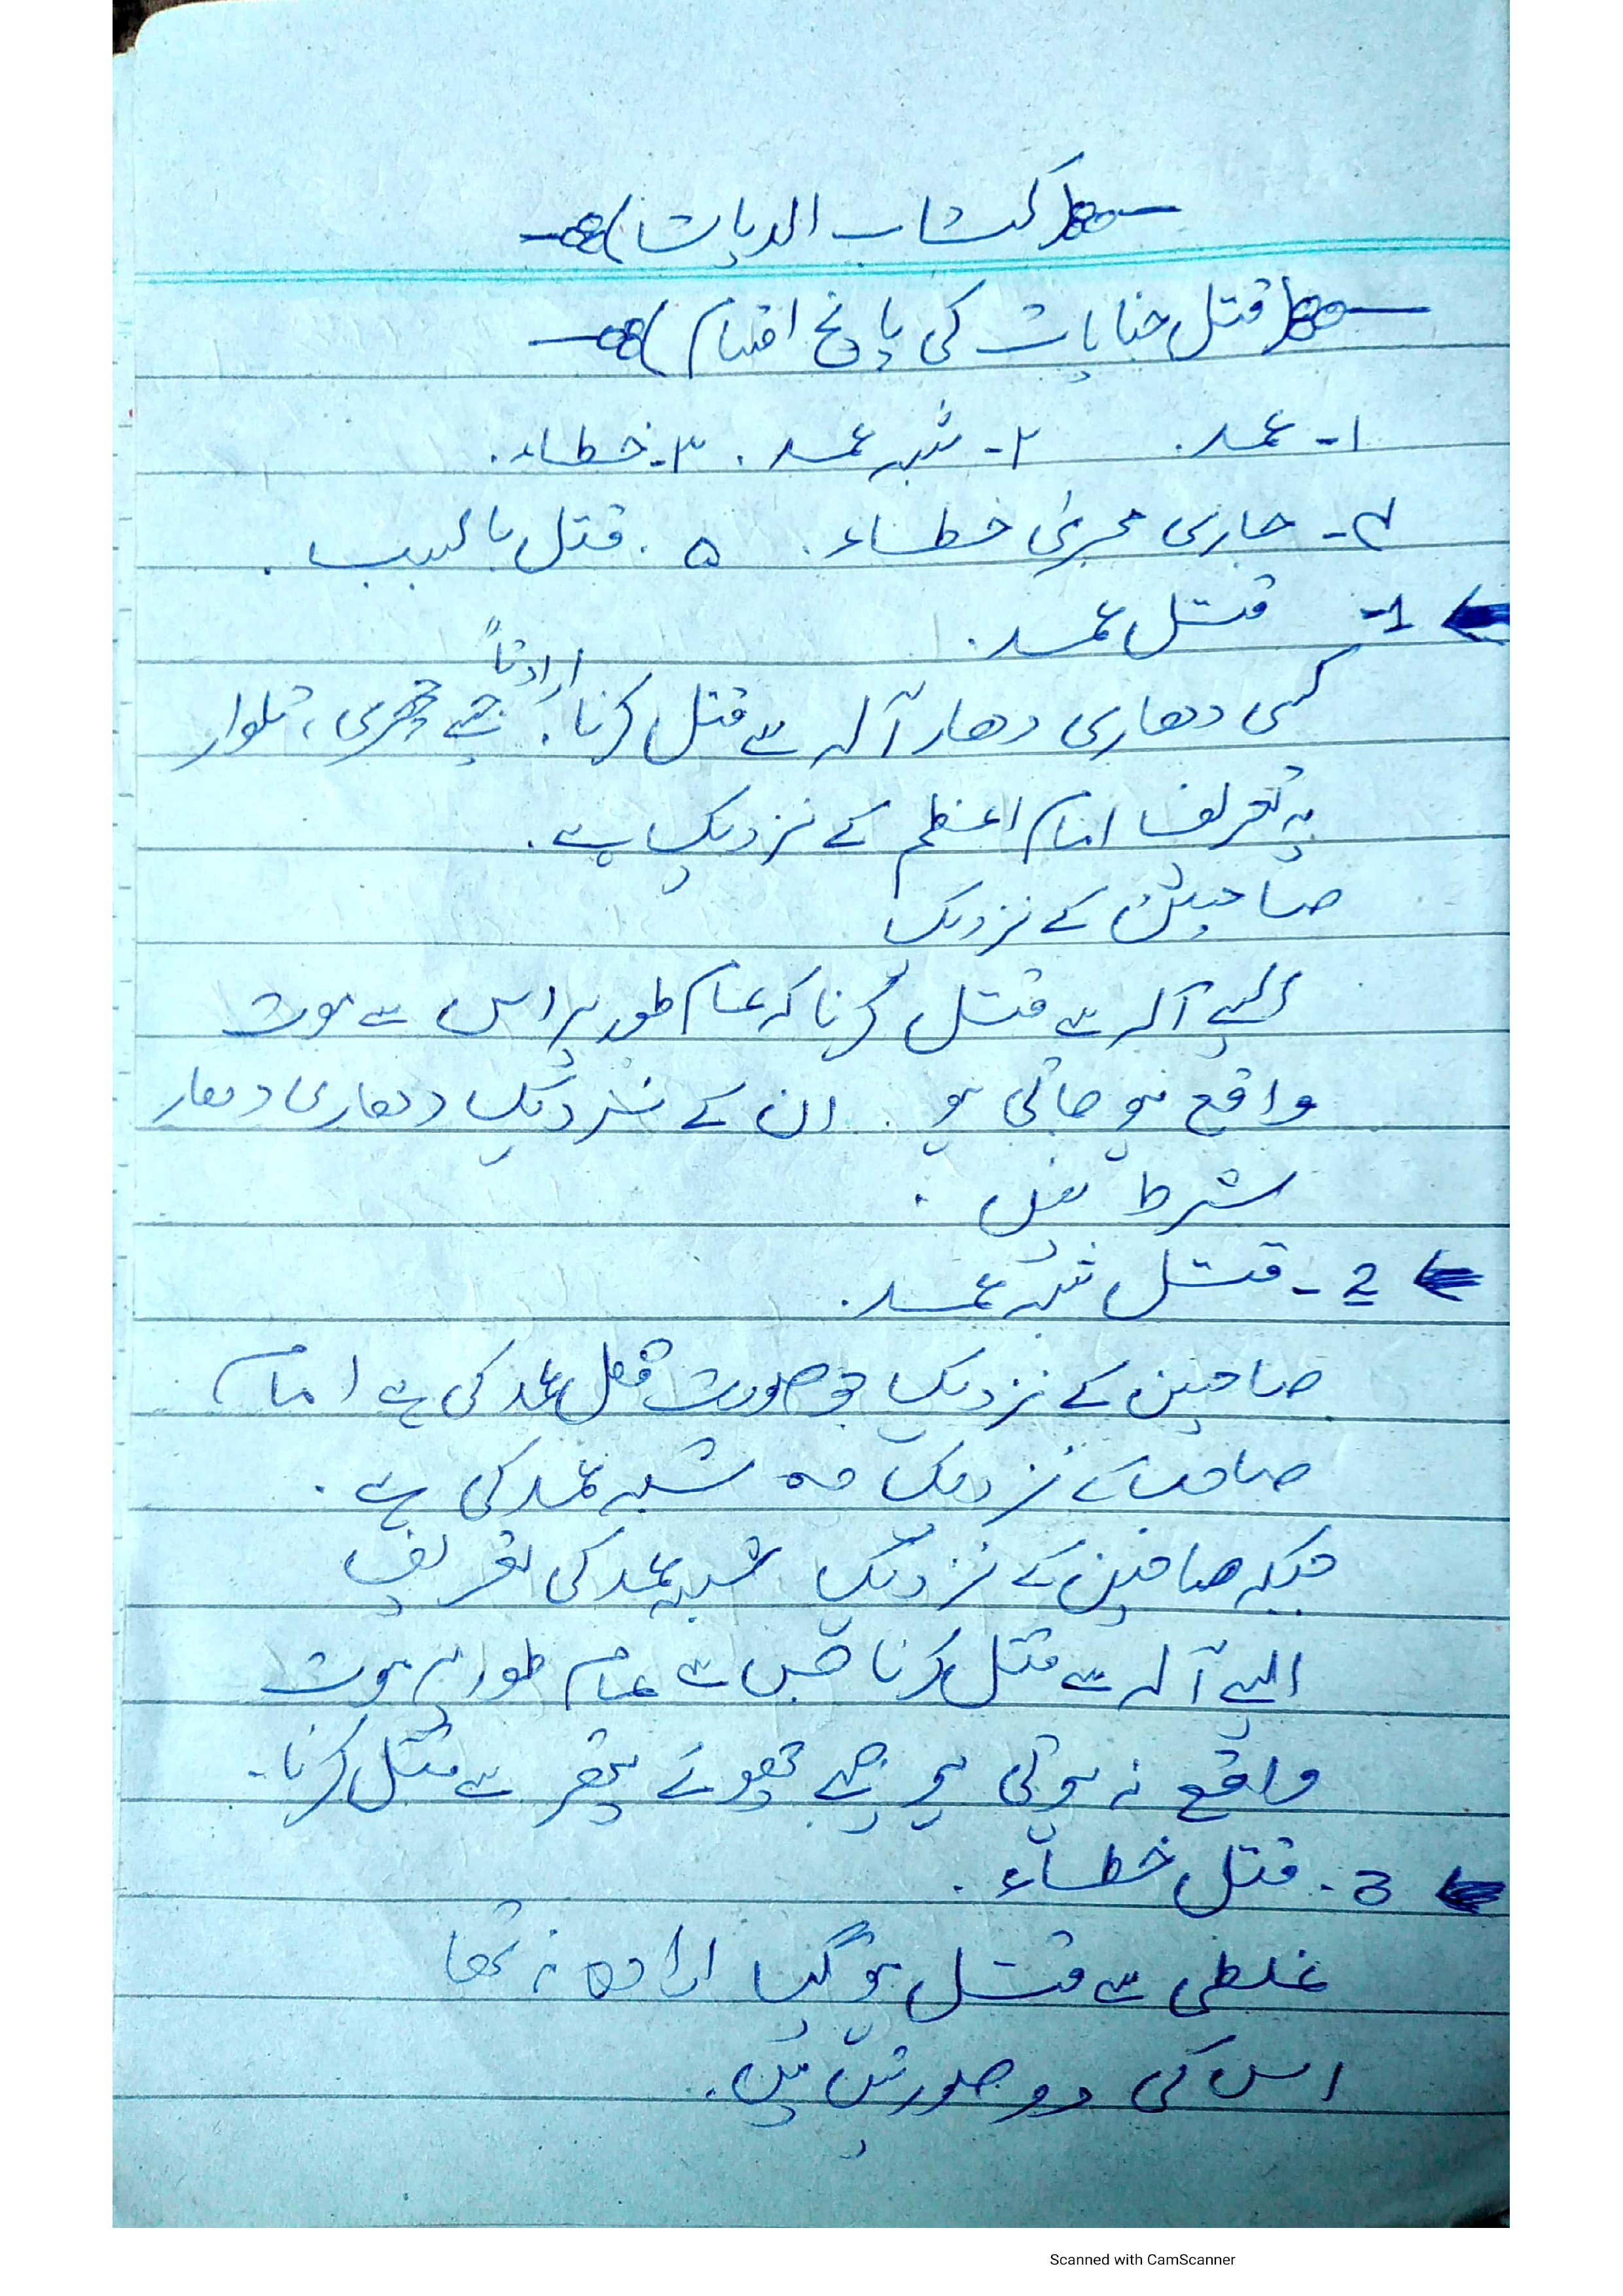 (کتاب الدیات)
(قتل جنایات کی پانچ اقسام)
۱- عمد. ۲- شبہ عمد. ۳- خطاء.
۴- جاری مجریٰ خطاء. ۵. قتل بالسبب.
1- قتل عمد.
ارادتاً
کسی دھاری دھار آلہ سے قتل کرنا. جیسے چھری، تلوار
یہ تعریف امام اعظم کے نزدیک ہے.
صاحبین کے نزدیک
ایسے آلہ سے قتل کرنا کہ عام طور پر اس سے موت
واقع ہو جاتی ہو. ان کے نزدیک دھاری دھار
شرط نہیں.
2- قتل شبہ عمد.
صاحبین کے نزدیک جو صورت قتل عمد کی ہے امام
صاحب کے نزدیک وہ شبہ عمد کی ہے.
جبکہ صاحبین کے نزدیک شبہ عمد کی تعریف
ایسے آلہ سے قتل کرنا جس سے عام طور پر موت
واقع نہ ہوتی ہو جیسے چھوٹے پتھر سے قتل کرنا.
3. قتل خطاء.
غلطی سے قتل ہو گیا ارادہ نہ تھا
اس کی دو صورتیں ہیں.
Scanned with CamScanner